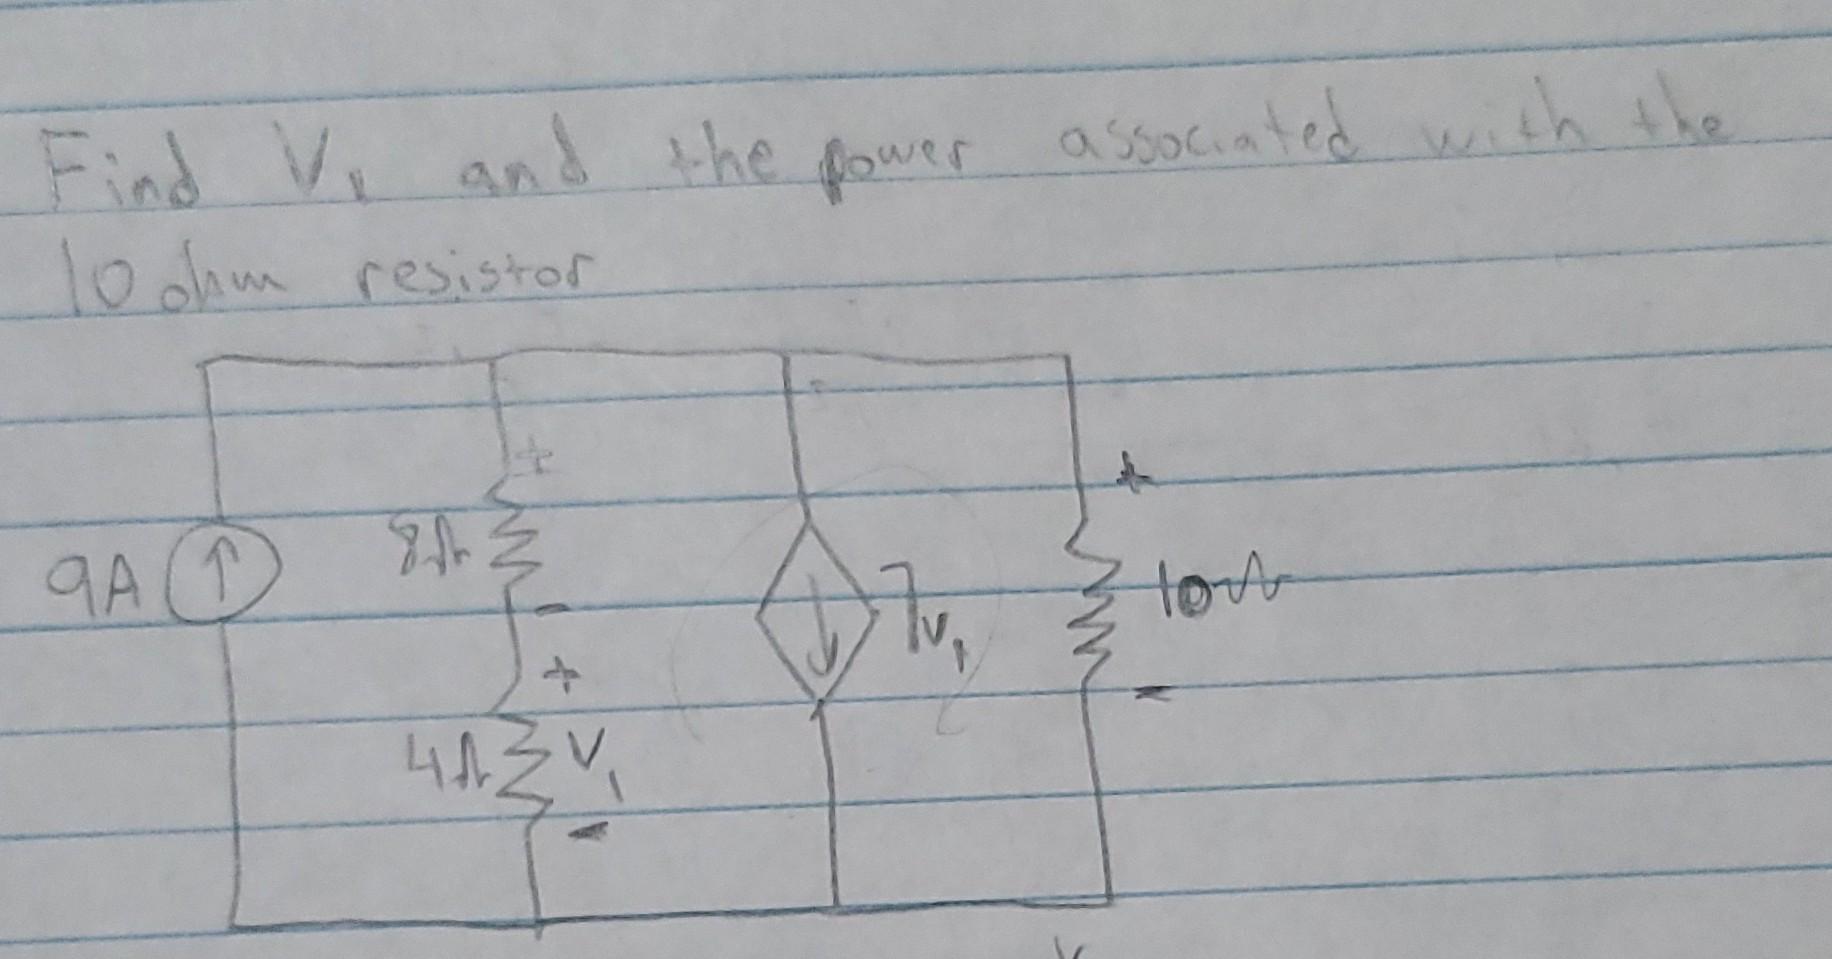 Find V₁ and the power associated with the
10 ohm resistor
+
+
8Ω
9A
10Ω
7v₁
-
+
-
4Ω
V₁
-